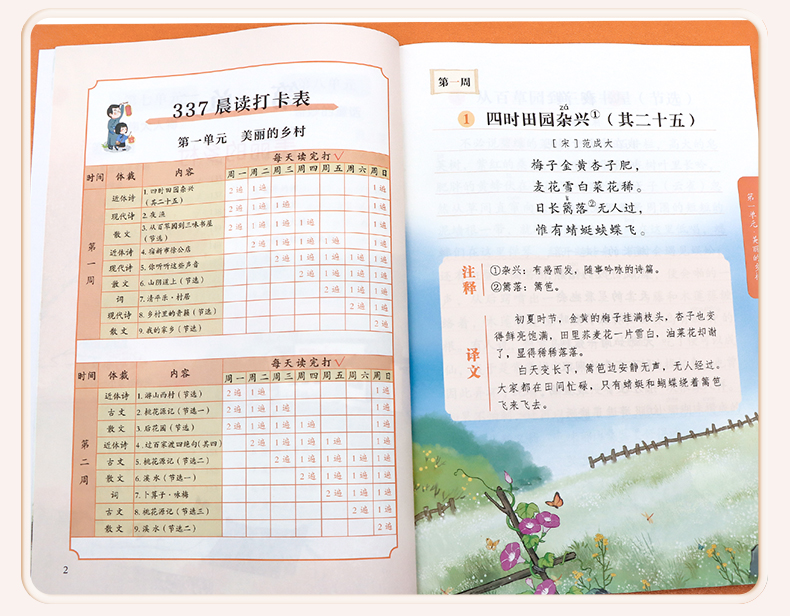 337晨读打卡表
第一单元 美丽的乡村
时间 体裁 内容 每天读完打√
周一 周二 周三 周四 周五 周六 周日
第一周
近体诗 1.四时田园杂兴(其二十五) 2遍 1遍 1遍
现代诗 2.夜渔 2遍 1遍 1遍 1遍
散文 3.从百草园到三味书屋(节选) 2遍 1遍 1遍 1遍
近体诗 4.宿新市徐公店 2遍 1遍 1遍 1遍 1遍
现代诗 5.你听听这些声音 2遍 1遍 1遍 1遍 1遍
散文 6.山阴道上(节选) 2遍 1遍 1遍 1遍
词 7.清平乐·村居 2遍 1遍 1遍
现代诗 8.乡村里的音籁(节选) 2遍 1遍
散文 9.我的家乡(节选) 2遍
时间 体裁 内容 每天读完打√
周一 周二 周三 周四 周五 周六 周日
第二周
近体诗 1.游山西村(节选) 2遍 1遍 1遍
古文 2.桃花源记(节选一) 2遍 1遍 1遍 1遍
散文 3.后花园(节选) 2遍 1遍 1遍 1遍
近体诗 4.过百家渡四绝句(其四) 2遍 1遍 1遍 1遍 1遍
古文 5.桃花源记(节选二) 2遍 1遍 1遍 1遍 1遍
散文 6.溪水(节选一) 2遍 1遍 1遍 1遍
词 7.卜算子·咏梅 2遍 1遍 1遍
古文 8.桃花源记(节选三) 2遍 1遍
散文 9.溪水(节选二) 2遍
2
第一周
zá
1 四时田园杂兴①(其二十五)
[宋]范成大
梅子金黄杏子肥,
麦花雪白菜花稀。
lí
日长篱落②无人过,
惟有蜻蜓蛱蝶飞。
注释
①杂兴:有感而发,随事吟咏的诗篇。
②篱落:篱笆。
译文
初夏时节,金黄的梅子挂满枝头,杏子也变
得鲜亮饱满,田里荞麦花一片雪白,油菜花却谢
了,显得稀稀落落。
白天变长了,篱笆边安静无声,无人经过。
大家都在田间忙碌,只有蜻蜓和蝴蝶绕着篱笆
飞来飞去。
第一单元 美丽的乡村